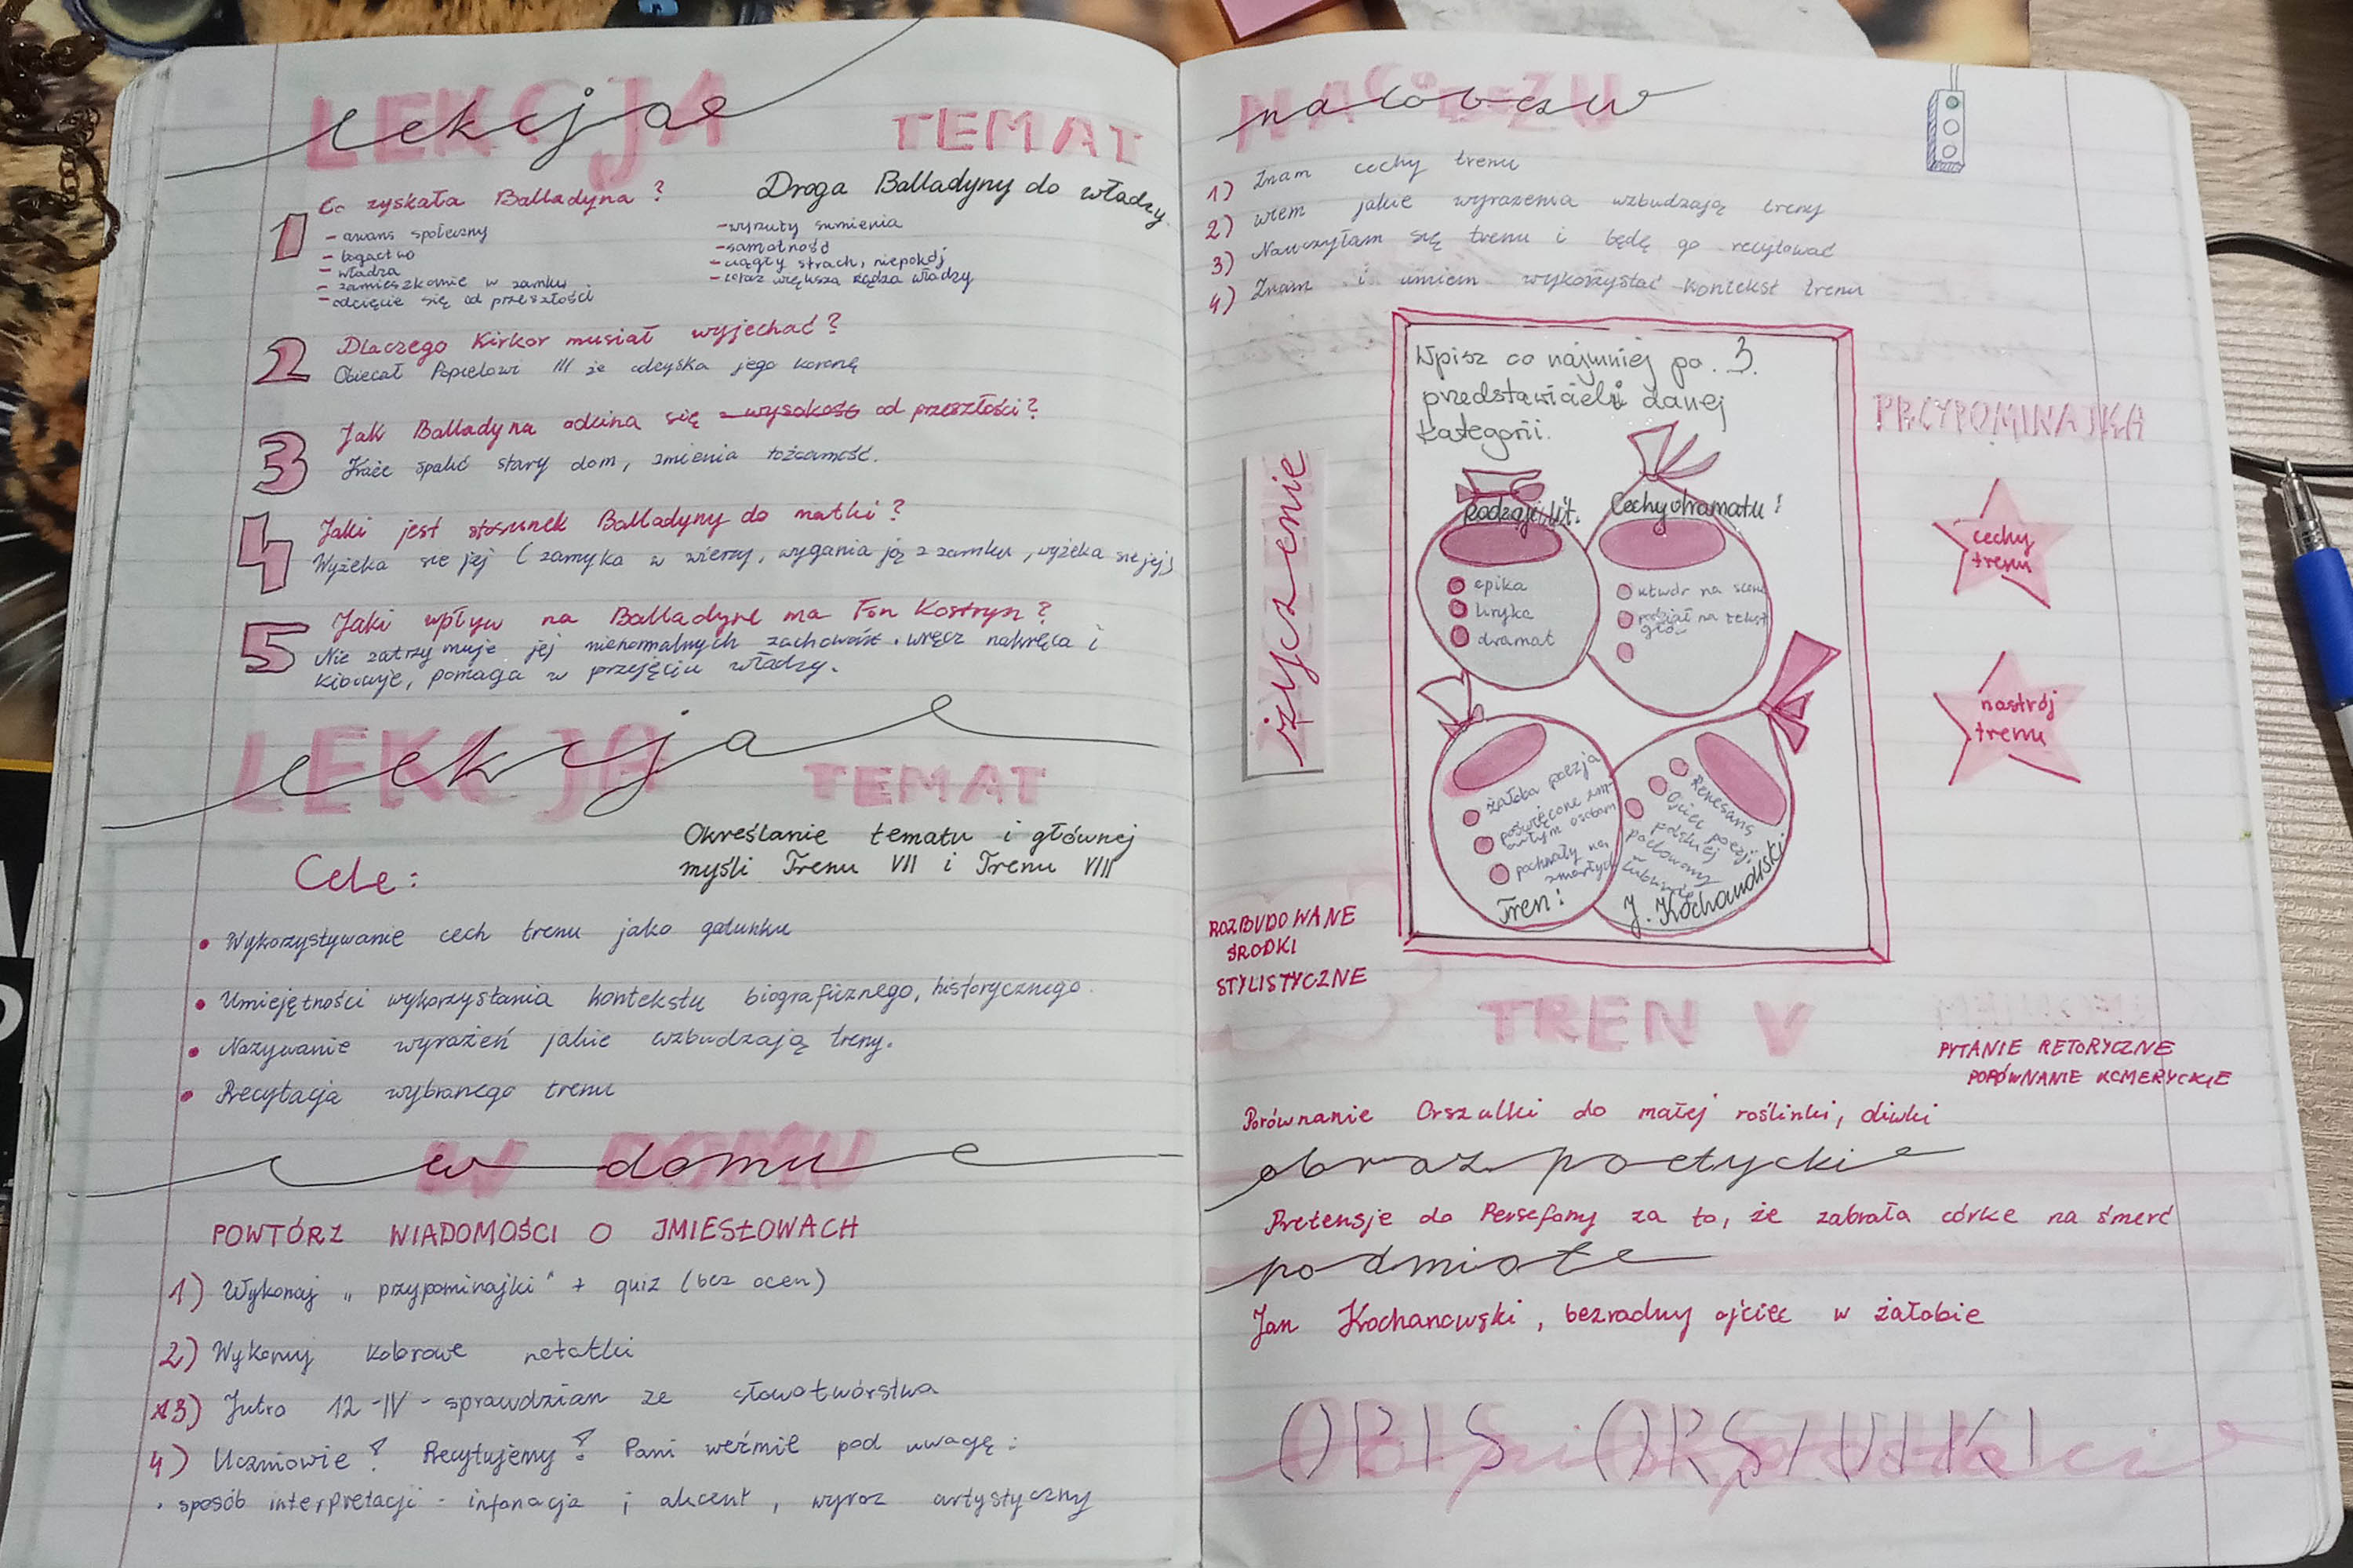 LEKCJA
lekcja
TEMAT
Droga Balladyny do władzy
1 Co zyskała Balladyna?
- awans społeczny
- bogactwo
- władza
- zamieszkanie w zamku
- odcięcie się od przeszłości
- wyrzuty sumienia
- samotność
- ciągły strach, niepokój
- coraz większa rządza władzy
2 Dlaczego Kirkor musiał wyjechać?
Obiecał Popielowi III że odzyska jego koronę
3 Jak Balladyna odcina się od przeszłości?
Każe spalić stary dom, zmienia tożsamość.
4 Jaki jest stosunek Balladyny do matki?
Wyżeka sie jej (zamyka w wierzy, wygania ją z zamku, wyżeka sie jej)
5 Jaki wpływ na Balladynę ma Fon Kostryn?
Nie zatrzymuje jej nienormalnych zachowań, wręcz nakręca i
kibicuje, pomaga w przejęciu władzy.
LEKCJA
lekcja
TEMAT
Określanie tematu i głównej
myśli Trenu VII i Trenu VIII
Cele:
• Wykorzystywanie cech trenu jako gatunku
• Umiejętności wykorzystania kontekstu biograficznego, historycznego.
• Nazywanie wyrażeń jakie wzbudzają treny.
• Recytacja wybranego trenu
W DOMU
w domu
POWTÓRZ WIADOMOŚCI O IMIESŁOWACH
1) Wykonaj „przypominajki" + quiz (bez ocen)
2) Wykonuj kolorowe notatki
*3) Jutro 12-IV - sprawdzian ze słowotwórstwa
4) Uczniowie! Recytujemy! Pani weźmie pod uwagę:
• sposób interpretacji - intonacja i akcent, wyraz artystyczny
NACOBEZU
nacobezu
1) Znam cechy trenu
2) wiem jakie wyrażenia wzbudzają treny
3) Nauczyłam się trenu i będę go recytować
4) Znam i umiem wykorzystać kontekst trenu
Wpisz co najmniej po 3.
przedstawicieli danej
kategorii.
ćwiczenie
PRZYPOMINAJKA
cechy
trenu
nastrój
trenu
Rodzaje lit.
epika
liryka
dramat
Cechy dramatu!
utwór na scenę
podział na tekst
żałoba poezja
poświęcone zm-
arłym osobom
pochwały na
zmarłych
Tren:
Renesans
Ojciec poezji
polskiej
pochowany
J. Kochanowski
ROZBUDOWANE
ŚRODKI
STYLISTYCZNE
TREN V
PYTANIE RETORYCZNE
PORÓWNANIE HOMERYCKIE
Porównanie Orszulki do małej roślinki, oliwki
obraz poetycki
Pretensje do Persefony za to, że zabrała córke na śmerć
podmiot
Jan Kochanowski, bezradny ojciec w żałobie
OPIS ORSZULKI